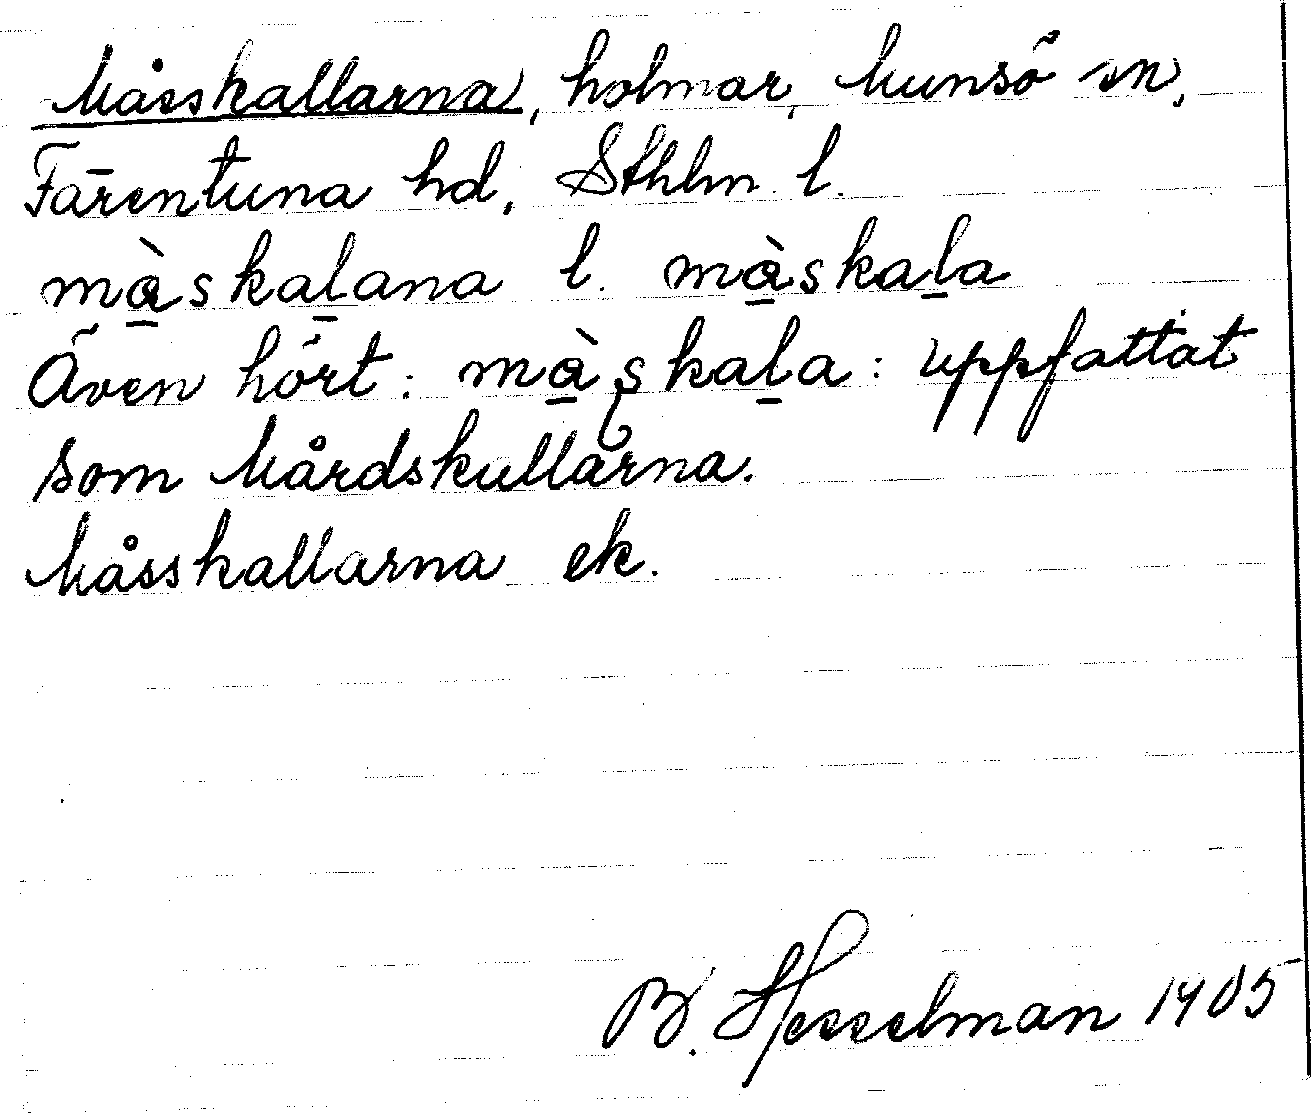 Måsskallarna, holmar, Munsö sn,
Färentuna hd, Sthlm l.
mà̱skaḻana l. mà̱skaḻa
Även hört: mà̱şkaḻa: uppfattat
som Mårdskullarna.
Måsskallarna ek.
B. Hesselman 1905